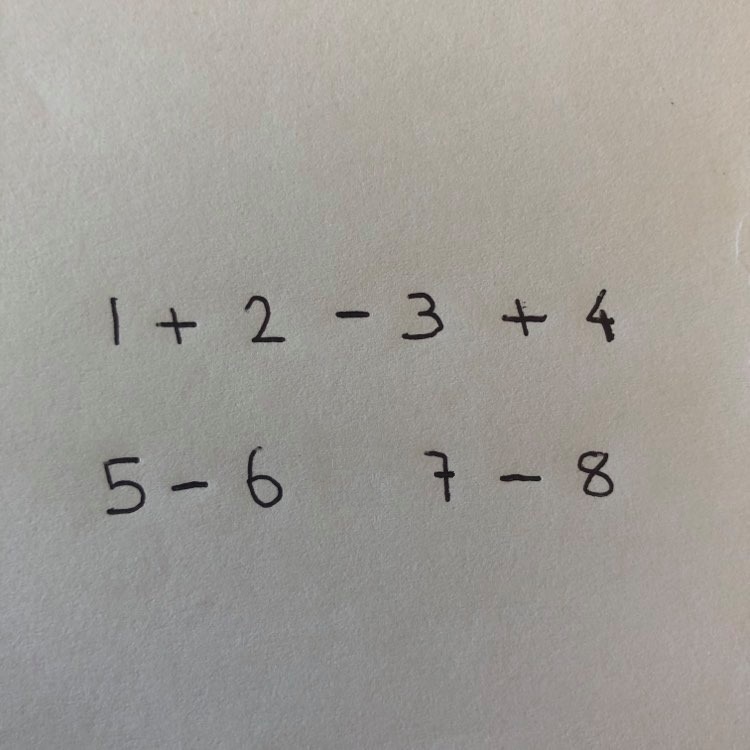 1 + 2 - 3 + 4
5 - 6 7 - 8